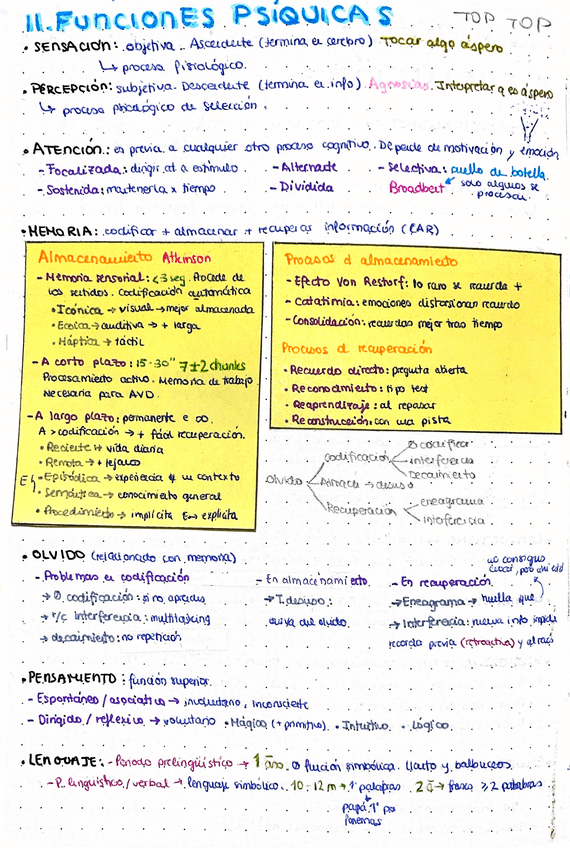 11. FUNCIONES PSÍQUICAS TOP TOP
• SENSACIÓN: objetiva. Ascendente (termina en cerebro) Tocar algo áspero
↳ proceso fisiológico.
• PERCEPCIÓN: subjetiva. Descendente (termina en info) Agnosias. Interpretar q es áspero
↳ proceso psicológico de selección.
• ATENCIÓN: es previa a cualquier otro proceso cognitivo. Depende de motivación y emoción
- Focalizada: dirigir at a estímulo - Alternante - Selectiva: cuello de botella.
- Sostenida: mantenerla x tiempo - Dividida Broadbent solo algunos se
procesan.
• MEMORIA: codificar + almacenar + recuperar información (CAR)
Almacenamiento Atkinson
- Memoria sensorial: <3 seg. Procede de
los sentidos. Codificación automática
• Icónica → visual → mejor almacenada
• Ecoica → auditiva → + larga
• Háptica → táctil
- A corto plazo: 15-30" 7±2 chunks
Procesamiento activo. Memoria de trabajo.
Necesaria para AVD.
- A largo plazo: permanente e ∞.
A > codificación → + fácil recuperación.
• Reciente → vida diaria
• Remota → + lejano
• Episódica → experiencia y un contexto
• Semántica → conocimiento general
• Procedimiento → implícita E → explícita
Procesos d almacenamiento
- Efecto Von Restorf: lo raro se recuerda +
- Catatimia: emociones distorsionan recuerdo
- Consolidación: recuerdas mejor tras tiempo
Procesos d recuperación
• Recuerdo directo: pregunta abierta
• Reconocimiento: tipo test
• Reaprendizaje: al repasar
• Reconstrucción: con una pista
Olvido
codificación
∅ codificar
interferencia
Decaimiento
Almacen → desuso
Recuperación
eneagrama
interferencia
• OLVIDO (relacionado con memoria)
- Problemas en codificación
→ ∅ codificación: si no aprendes
→ f/c Interferencia: multitasking
→ decaimiento: no repetición
- En almacenamiento
→ T. desuso:
curva del olvido.
- En recuperación.
→ Eneagrama → huella que
→ Interferencia: nueva info impide
recordar previa (retroactiva) y al revés
• PENSAMIENTO: función superior.
- Espontáneo / asociativo → involuntario, inconsciente
- Dirigido / reflexivo → voluntario • Mágico (+ primitivo) • Intuitivo • Lógico.
• LENGUAJE: - Periodo prelingüístico → 1 año. ∅ función simbólica. Llanto y balbuceos.
- P. lingüístico / verbal → lenguaje simbólico. 10-12 m → 1ª palabras. 2 a → frases ≥ 2 palabras
papá 1º po
fonemas